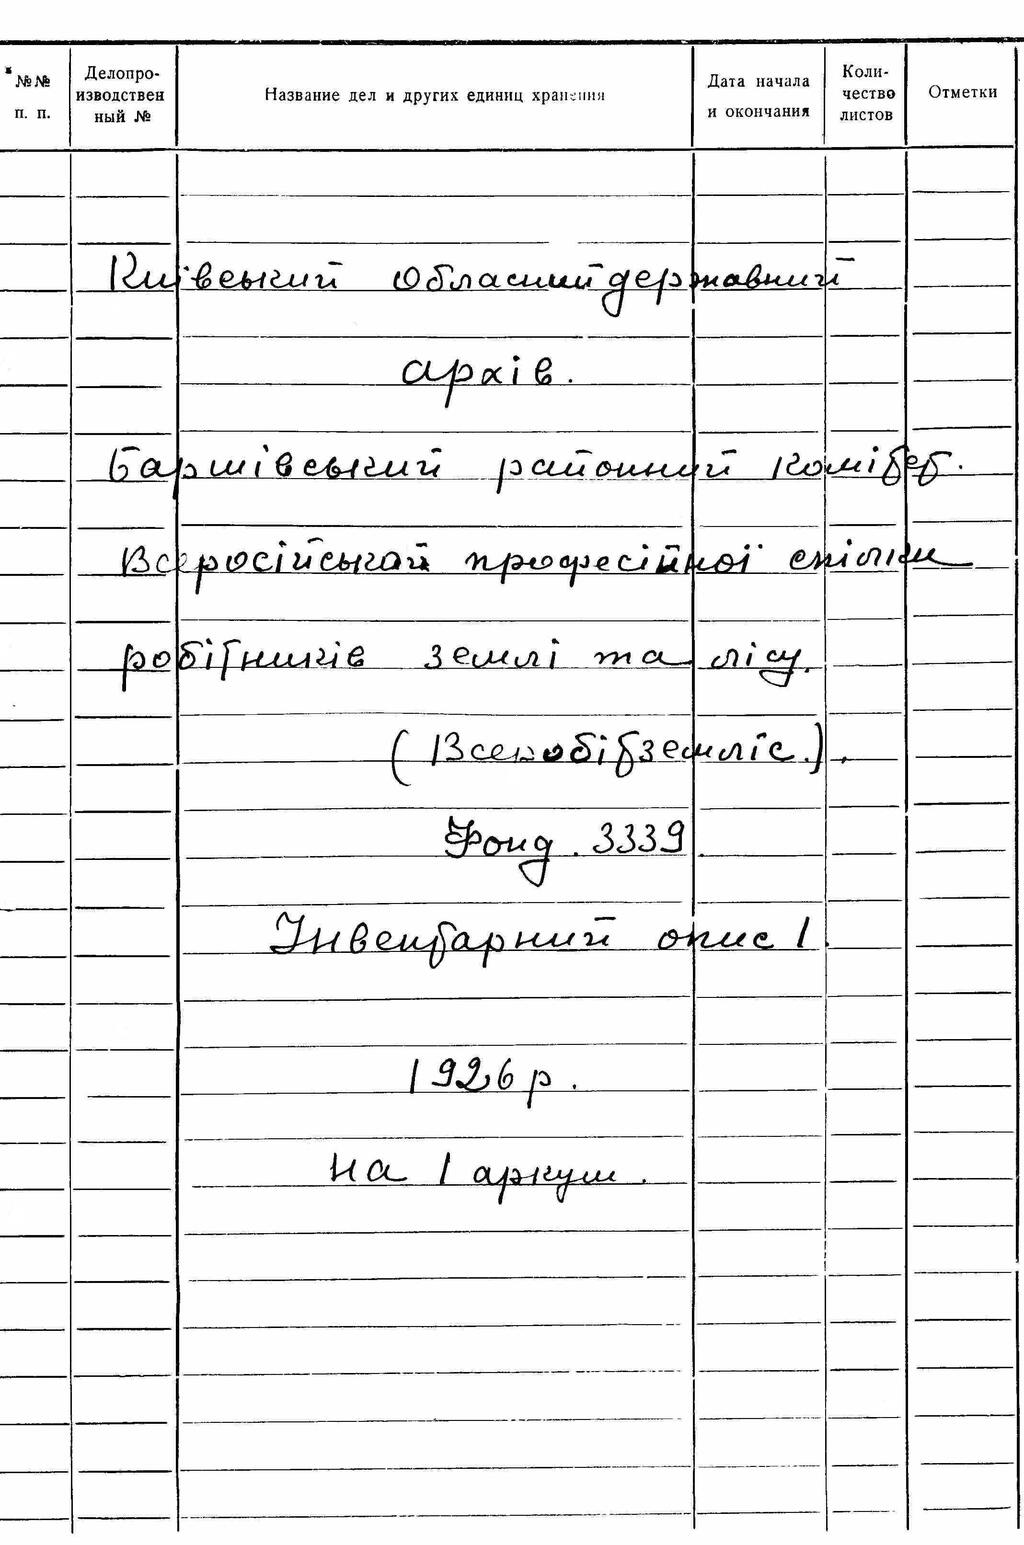 №№ п. п.
Делопро-
изводствен
ный №
Название дел и других единиц хранения
Дата начала
и окончания
Коли-
чество
листов
Отметки
Київський обласний державний
архів.
Баришівський районний комітет.
Всеросійської професійної спілки
робітників землі та лісу.
(Всеробітземліс.).
Фонд. 3339.
Інвентарний опис 1.
1926 р.
на 1 аркуш.